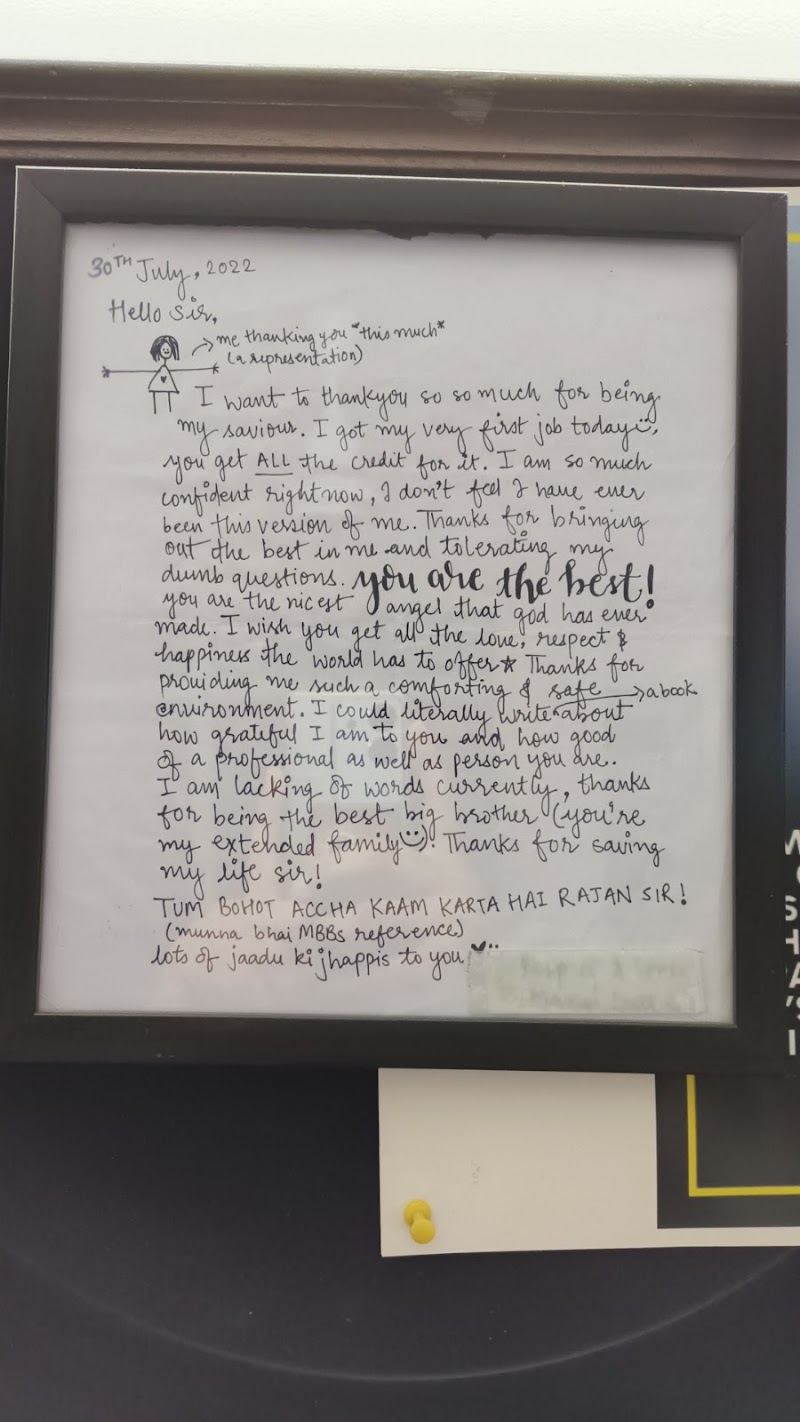 30TH July, 2022
Hello Sir,
me thanking you *this much*
(a representation)
I want to thankyou so so much for being
my saviour. I got my very first job today
you get ALL the credit for it. I am so much
confident right now, I don't feel I have ever
been this version of me. Thanks for bringing
out the best in me and tolerating my
dumb questions. you are the best!
you are the nicest angel that god has ever
made. I wish you get all the love, respect &
happiness the world has to offer★ Thanks for
providing me such a comforting & safe
environment. I could literally write about
a book
how grateful I am to you and how good
of a professional as well as person you are.
I am lacking of words currently, thanks
for being the best big brother (you're
my extended family☺). Thanks for saving
my life sir!
TUM BOHOT ACCHA KAAM KARTA HAI RAJAN SIR!
(munna bhai MBBS reference)
lots of jaadu ki jhappis to you